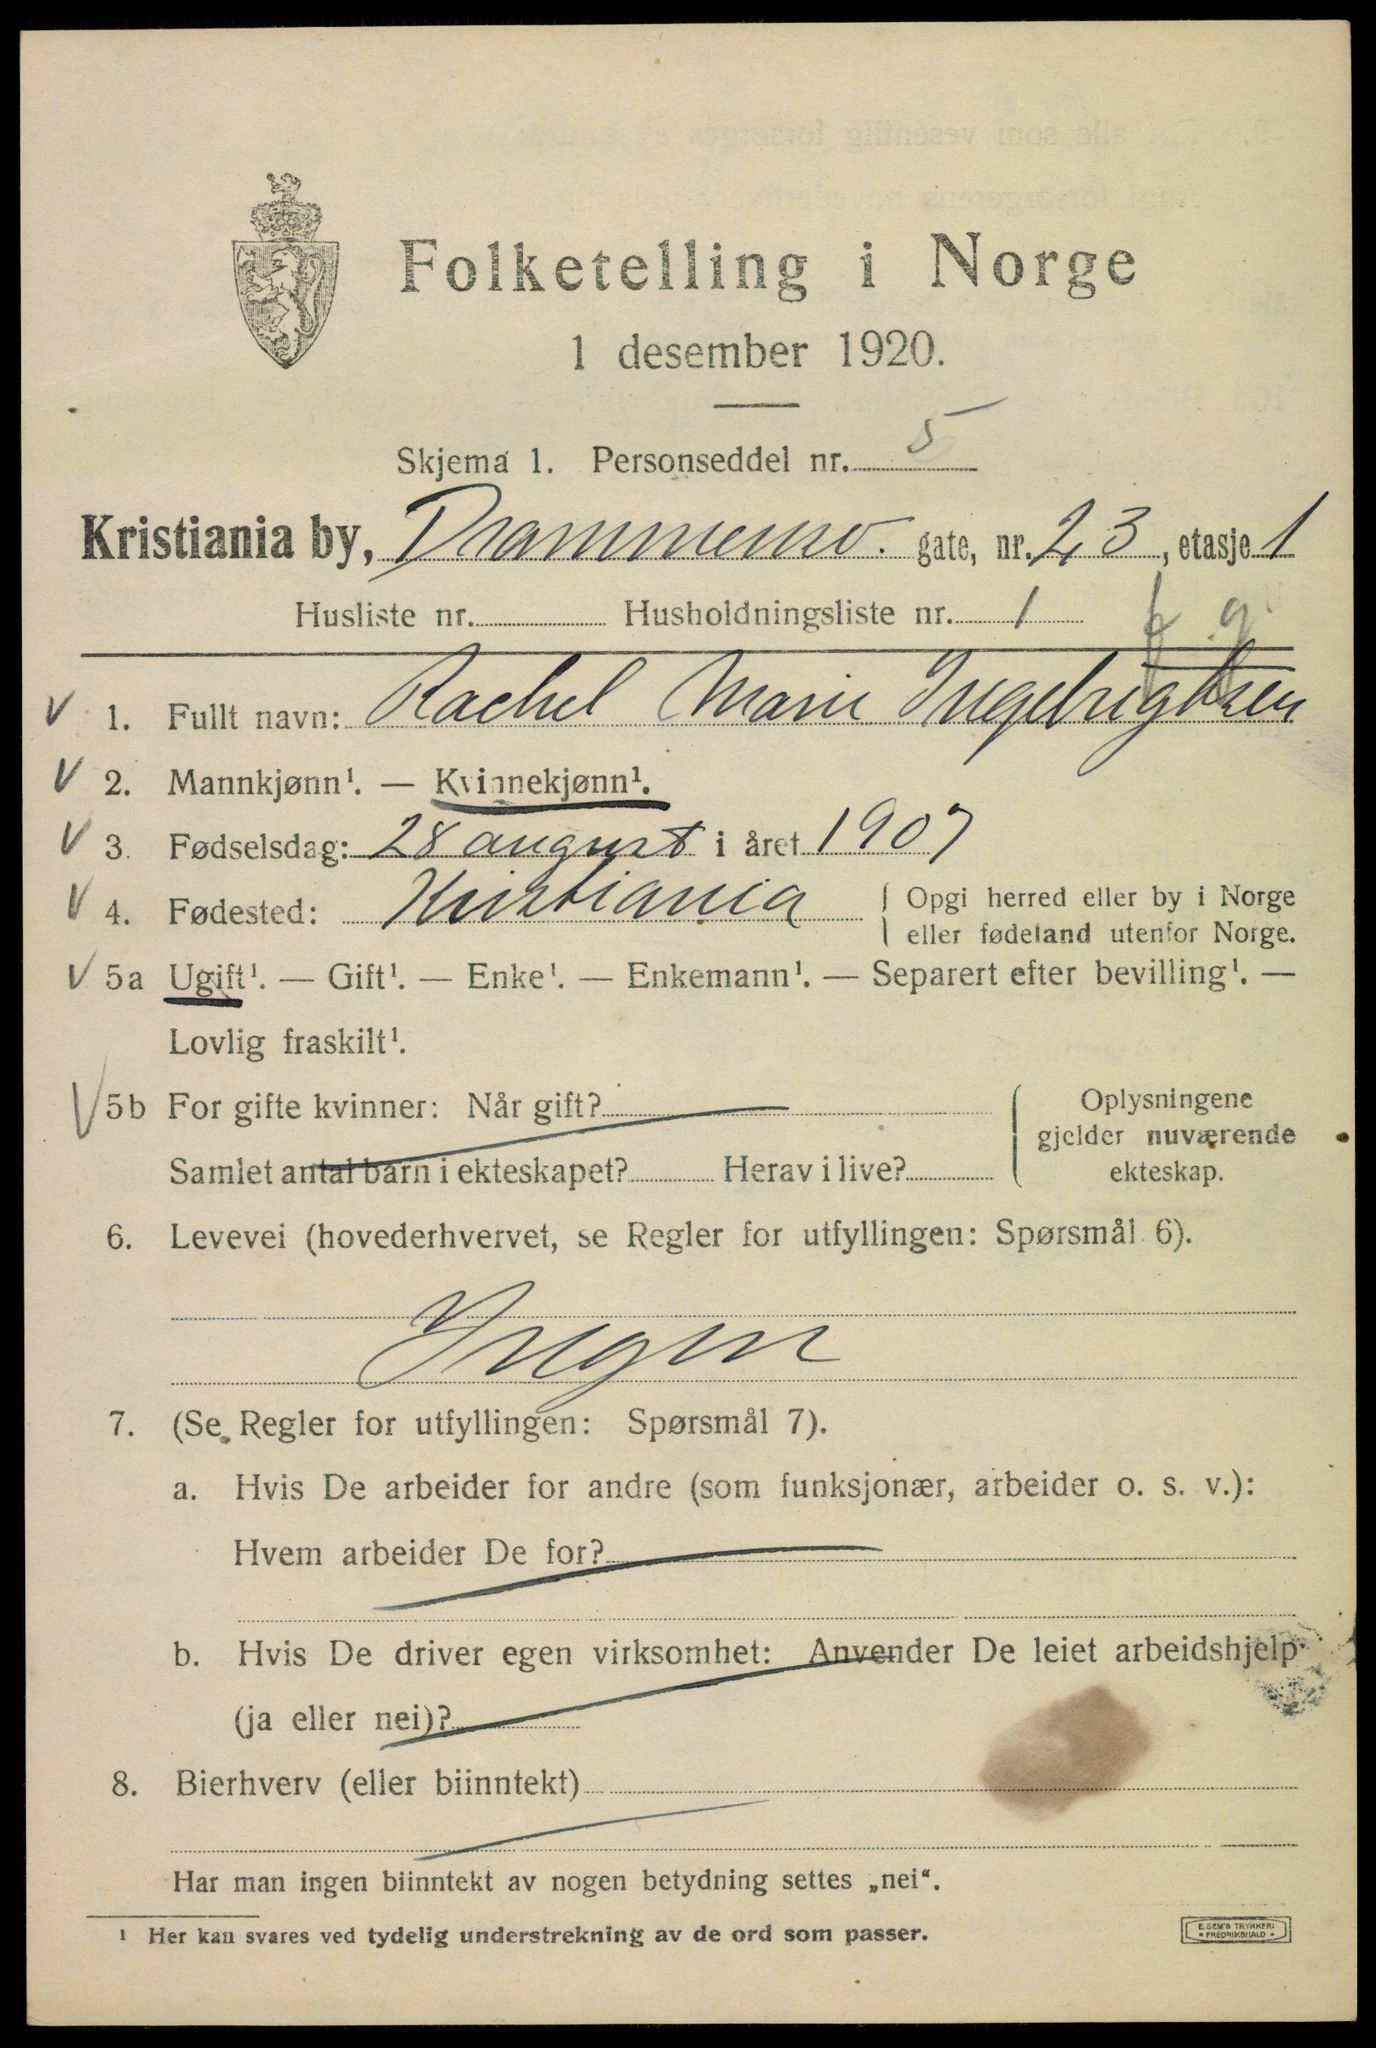 Folketelling i Norge
1 desember 1920.
Skjema 1. Personseddel nr. 5
Kristiania by, Drammensv. gate, nr. 23, etasje 1
Husliste nr. Husholdningsliste nr. 1
1. Fullt navn: Rachel Marie Ingebrigtsen
2. Mannkjønn¹. — Kvinnekjønn¹.
3. Fødselsdag: 28 august i året 1907
4. Fødested: Kristiania { Opgi herred eller by i Norge
eller fødeland utenfor Norge.
5a Ugift¹. — Gift¹. — Enke¹. — Enkemann¹. — Separert efter bevilling¹. —
Lovlig fraskilt¹.
5b For gifte kvinner: Når gift?
Samlet antal barn i ekteskapet? Herav i live?
Oplysningene
gjelder nuværende
ekteskap.
6. Levevei (hovederhvervet, se Regler for utfyllingen: Spørsmål 6).
Ingen
7. (Se Regler for utfyllingen: Spørsmål 7).
a. Hvis De arbeider for andre (som funksjonær, arbeider o. s. v.):
Hvem arbeider De for?
b. Hvis De driver egen virksomhet: Anvender De leiet arbeidshjelp
(ja eller nei)?
8. Bierhverv (eller biinntekt)
Har man ingen biinntekt av nogen betydning settes „nei“.
¹ Her kan svares ved tydelig understrekning av de ord som passer.
E. SEM'S TRYKKERI
FREDRIKSHALD